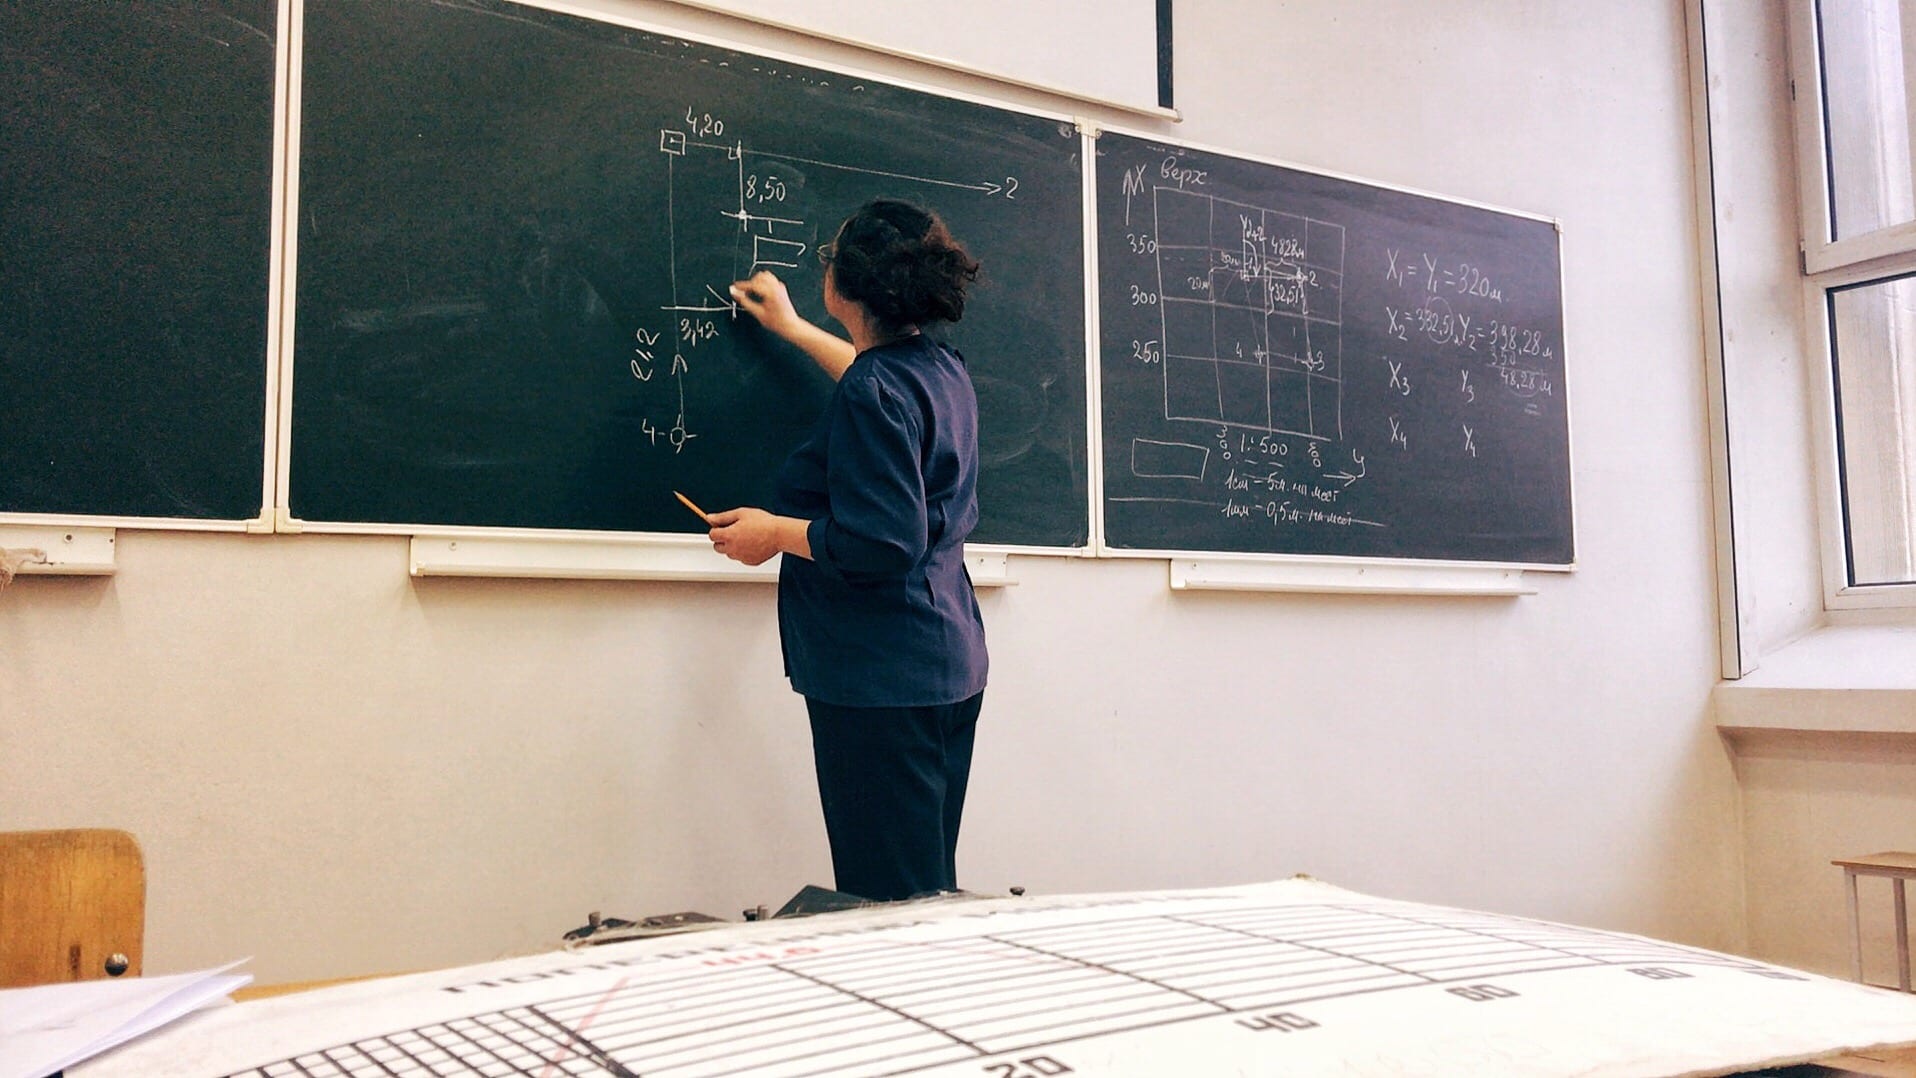 4,20
2
8,50
3,42
21,2
4
X верх
350
4828м
20м
2
300
32,51
250
4
3
300
500
1:500
y
1см - 5м. на мест
1мм - 0,5м. на мест
X₁ = Y₁ = 320м.
X₂ = 332,51 Y₂ = 398,28м
350
48,28м
X₃ Y₃
X₄ Y₄
20
40
60
80